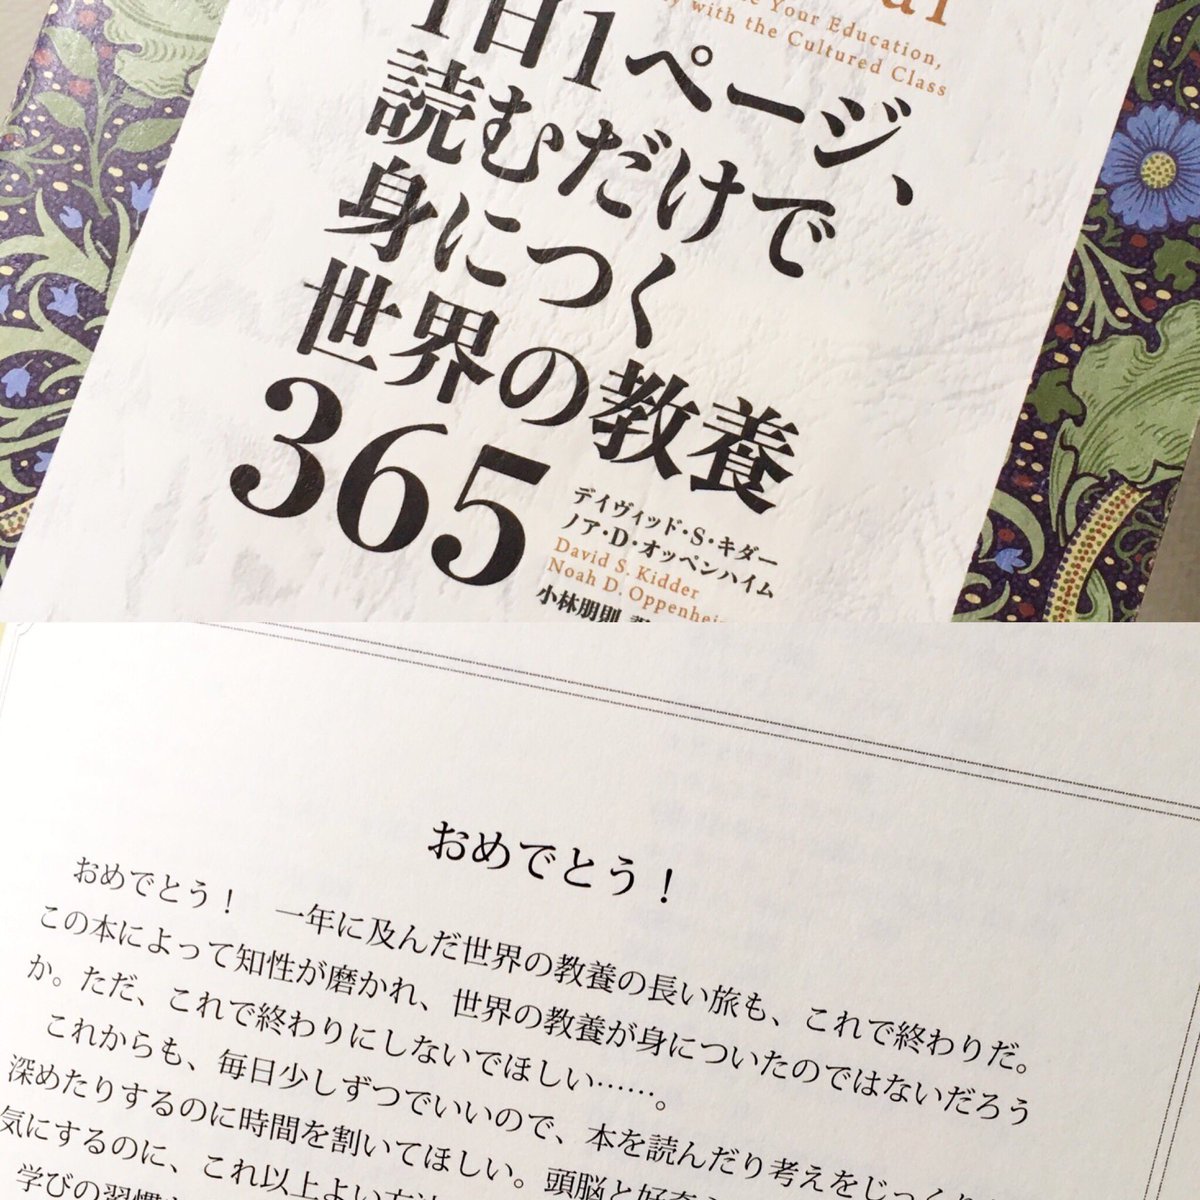 Your Education,
with the Cultured Class
1日1ページ、
読むだけで
身につく
世界の教養
365
デイヴィッド・S・キダー
ノア・D・オッペンハイム
David S. Kidder
Noah D. Oppenhei
小林朋則 訳
おめでとう！
おめでとう！　一年に及んだ世界の教養の長い旅も、これで終わりだ。
この本によって知性が磨かれ、世界の教養が身についたのではないだろう
か。ただ、これで終わりにしないでほしい……。
これからも、毎日少しずつでいいので、本を読んだり考えをじっくり
深めたりするのに時間を割いてほしい。頭脳と好奇
気にするのに、これ以上よい方法
学びの習慣